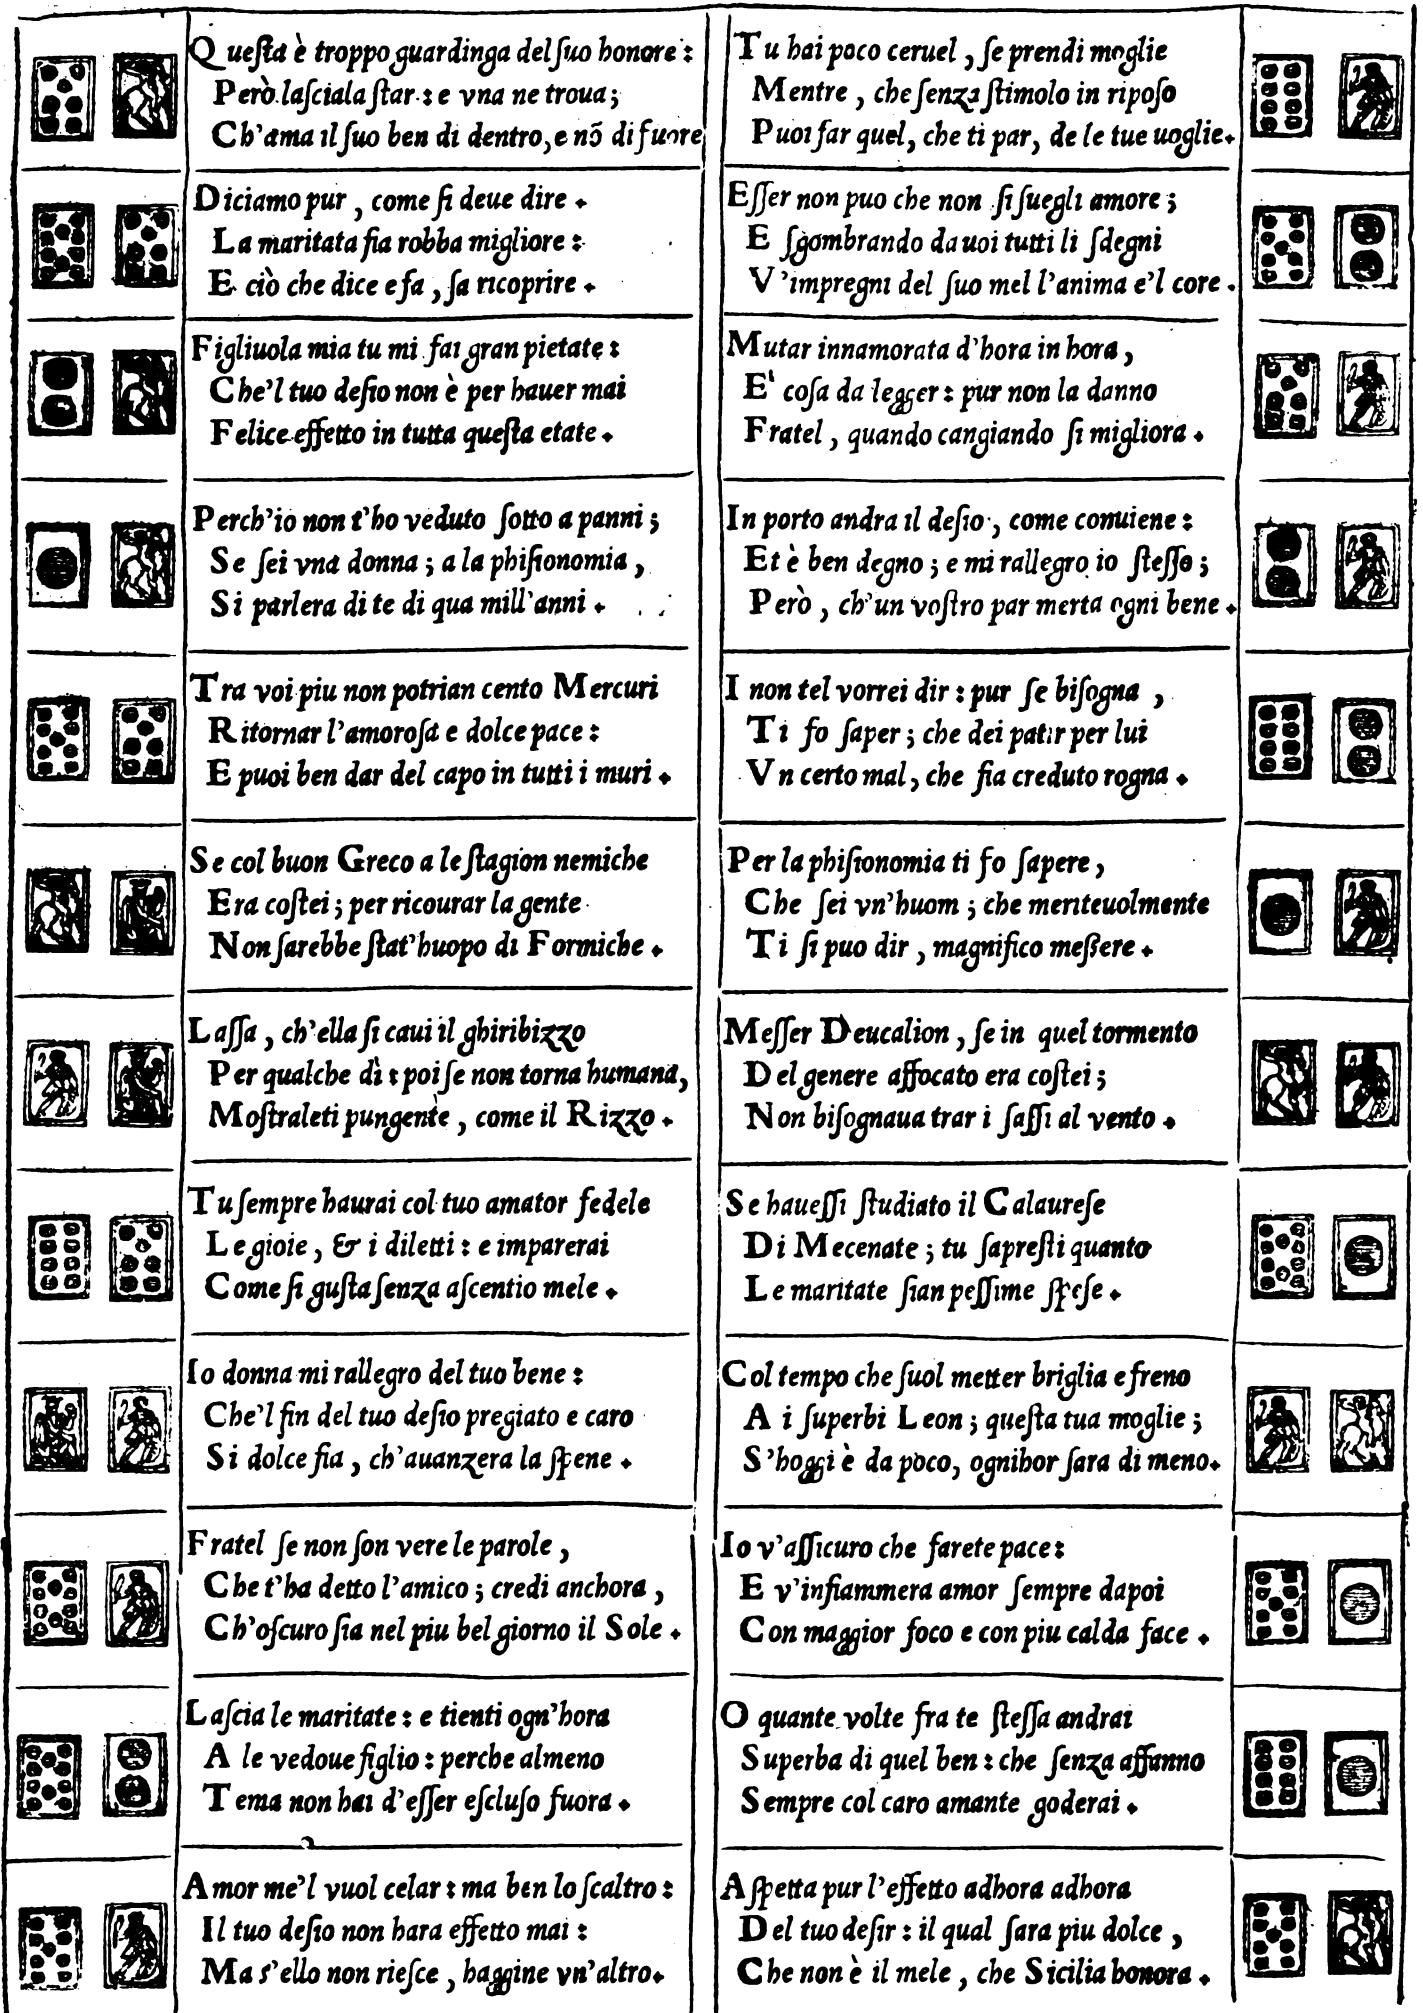 Queſta è troppo guardinga del ſuo honore:
Però laſciala ſtar: e vna ne troua;
Ch'ama il ſuo ben di dentro, e nō di fuore
Diciamo pur, come ſi deue dire.
La maritata ſia robba migliore:
E ciò che dice e fa, ſa ricoprire.
Figliuola mia tu mi fai gran pietate:
Che'l tuo deſio non è per hauer mai
Felice effetto in tutta queſta etate.
Perch'io non t'ho veduto ſotto a panni;
Se ſei vna donna; a la phiſionomia,
Si parlera di te di qua mill'anni.
Tra voi piu non potrian cento Mercuri
Ritornar l'amoroſa e dolce pace:
E puoi ben dar del capo in tutti i muri.
Se col buon Greco a le ſtagion nemiche
Era coſtei; per ricourar la gente
Non ſarebbe ſtat'huopo di Formiche.
Laſſa, ch'ella ſi caui il ghiribizzo
Per qualche dì: poi ſe non torna humana,
Moſtraleti pungente, come il Rizzo.
Tu ſempre haurai col tuo amator fedele
Le gioie, & i diletti: e imparerai
Come ſi guſta ſenza aſcentio mele.
Io donna mi rallegro del tuo bene:
Che'l fin del tuo deſio pregiato e caro
Si dolce fia, ch'auanzera la ſpene.
Fratel ſe non ſon vere le parole,
Che t'ha detto l'amico; credi anchora,
Ch'oſcuro ſia nel piu bel giorno il Sole.
Laſcia le maritate: e tienti ogn'hora
A le vedoue figlio: perche almeno
Tema non hai d'eſſer eſcluſo fuora.
Amor me'l vuol celar: ma ben lo ſcaltro:
Il tuo deſio non hara effetto mai:
Ma s'ello non rieſce, haggine vn'altro.
Tu hai poco ceruel, ſe prendi moglie
Mentre, che ſenza ſtimolo in ripoſo
Puoi far quel, che ti par, de le tue uoglie.
Eſſer non puo che non ſi ſuegli amore;
E ſgombrando da uoi tutti li ſdegni
V'impregni del ſuo mel l'anima e'l core.
Mutar innamorata d'hora in hora,
E' coſa da legger: pur non la danno
Fratel, quando cangiando ſi migliora.
In porto andra il deſio, come conuiene:
Et è ben degno; e mi rallegro io ſteſſo;
Però, ch'un voſtro par merta ogni bene.
I non tel vorrei dir: pur ſe biſogna,
Ti fo ſaper; che dei patir per lui
Vn certo mal, che ſia creduto rogna.
Per la phiſionomia ti fo ſapere,
Che ſei vn'huom; che meriteuolmente
Ti ſi puo dir, magnifico meßere.
Meſſer Deucalion, ſe in quel tormento
Del genere affocato era coſtei;
Non biſognaua trar i ſaſſi al vento.
Se haueſſi ſtudiato il Calaureſe
Di Mecenate; tu ſapreſti quanto
Le maritate ſian peſſime ſpeſe.
Col tempo che ſuol metter briglia e freno
A i ſuperbi Leon; queſta tua moglie;
S'hoggi è da poco, ognihor ſara di meno.
Io v'aſſicuro che farete pace:
E v'infiammera amor ſempre dapoi
Con maggior foco e con piu calda face.
O quante volte fra te ſteſſa andrai
Superba di quel ben: che ſenza affanno
Sempre col caro amante goderai.
Aſpetta pur l'effetto adhora adhora
Del tuo deſir: il qual ſara piu dolce,
Che non è il mele, che Sicilia honora.